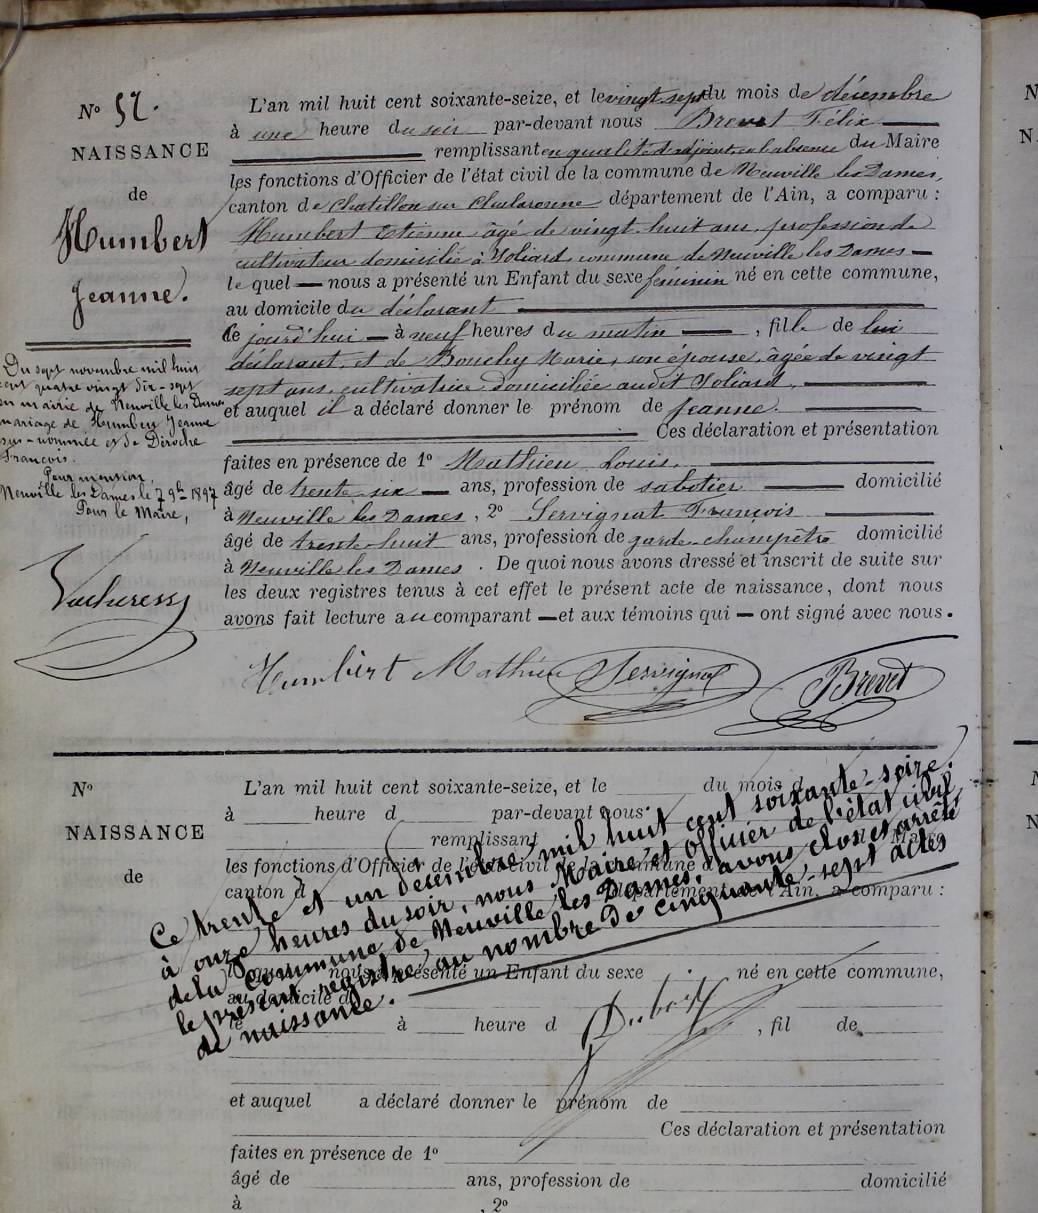 N° 57.
NAISSANCE
de
Humbert
Jeanne.
Du sept novembre mil huit
cent quatre vingt dix-sept
en mairie de Neuville les Dames
mariage de Humbert Jeanne
sus-nommée et de Deroche
François.
Pour mention,
Neuville les Dames le 7 9bre 1897
Pour le Maire,
L'an mil huit cent soixante-seize, et le vingt sept du mois de décembre
à une heure du soir par-devant nous Brevet Félix
remplissant en qualité d'adjoint en l'absence du Maire
les fonctions d'Officier de l'état civil de la commune de Neuville les Dames,
canton de Chatillon sur Chalaronne département de l'Ain, a comparu :
Humbert Etienne âgé de vingt-huit ans, profession de
cultivateur domicilié à Joliard commune de Neuville les Dames
lequel nous a présenté un Enfant du sexe féminin né en cette commune,
au domicile du déclarant
ce jourd'hui à neuf heures du matin , fille de lui
déclarant, et de Bouchy Marie, son épouse, âgée de vingt
sept ans, cultivatrice domiciliée audit Joliard,
et auquel il a déclaré donner le prénom de Jeanne.
Ces déclaration et présentation
faites en présence de 1° Mathieu Louis,
âgé de trente-six ans, profession de sabotier domicilié
à Neuville les Dames , 2° Servignat François
âgé de trente-huit ans, profession de garde-champêtre domicilié
à Neuville les Dames . De quoi nous avons dressé et inscrit de suite sur
les deux registres tenus à cet effet le présent acte de naissance, dont nous
avons fait lecture au comparant et aux témoins qui ont signé avec nous.
Humbert Mathieu Servignat Brevet
N°
NAISSANCE
de
L'an mil huit cent soixante-seize, et le du mois d
à heure d par-devant nous
remplissant Maire
les fonctions d'Officier de l'état civil de la commune d
canton d département de l'Ain, a comparu :
Ce trente et un décembre mil huit cent soixante-seize.
à onze heures du soir, nous Maire et Officier de l'état civil
de la Commune de Neuville les Dames, avons clos et arrêté
le présent registre au nombre de cinquante-sept actes
de naissance.
nous a présenté un Enfant du sexe né en cette commune,
au domicile d
le à heure d , fil de
et auquel a déclaré donner le prénom de
Ces déclaration et présentation
faites en présence de 1°
âgé de ans, profession de domicilié
à , 2°